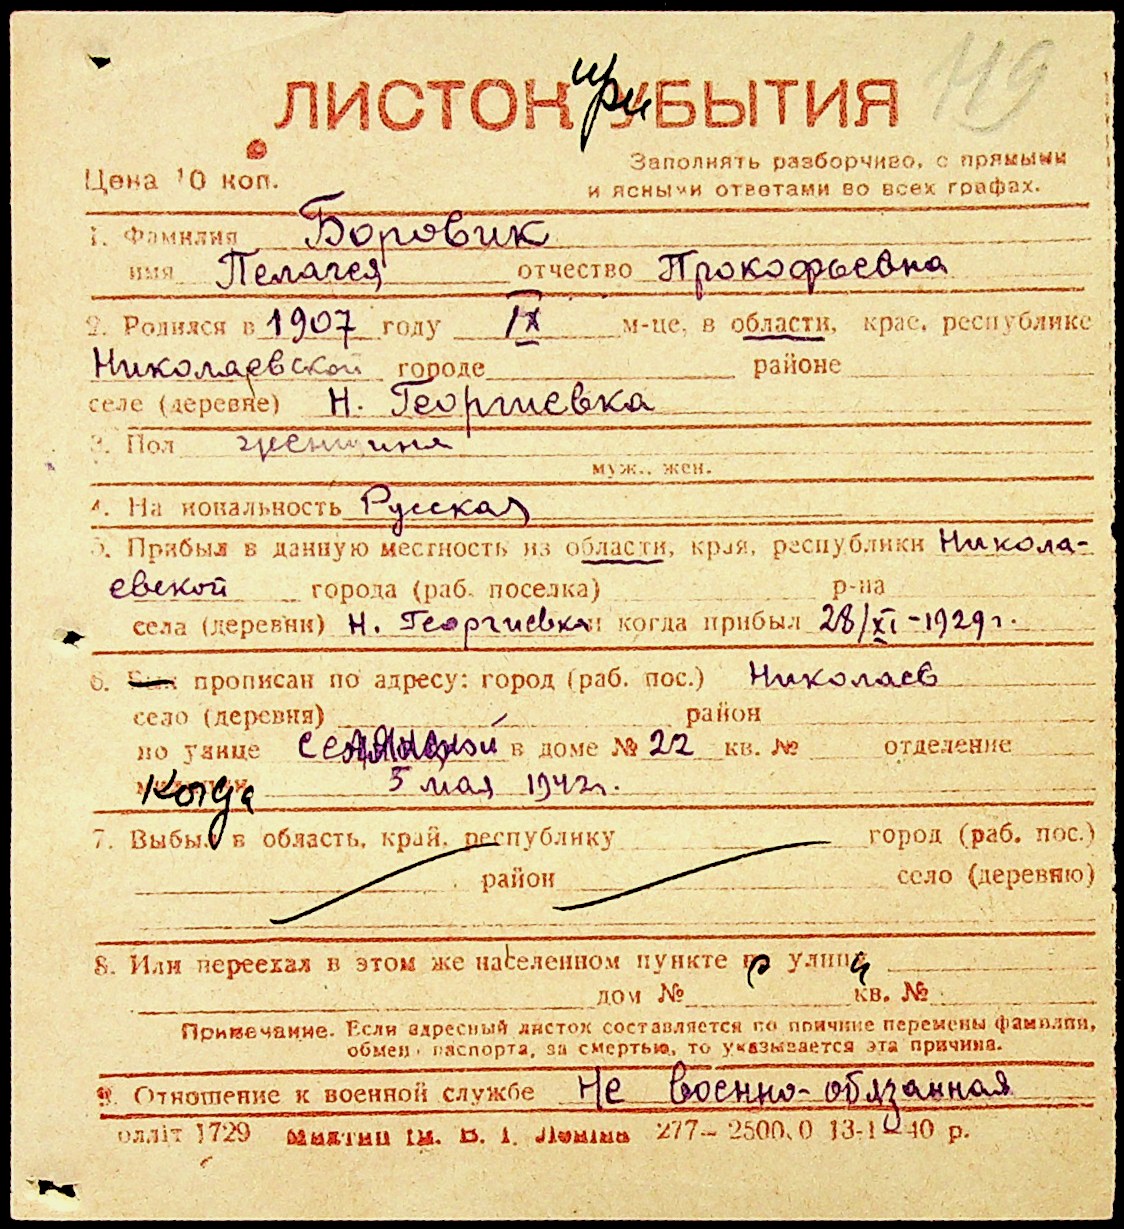 ЛИСТОК при УБЫТИЯ
Цена 10 коп.
Заполнять разборчиво, с прямыми
и ясными ответами во всех графах.
1. Фамилия Боровик
имя Пелагея отчество Прокофьевна
2. Родился в 1907 году IX м-це, в области, крае, республике
Николаевской городе районе
селе (деревне) Н. Георгиевка
3. Пол женщина
муж., жен.
4. Национальность Русская
5. Прибыл в данную местность из области, края, республики Никола-
евской города (раб. поселка) р-на
села (деревни) Н. Георгиевка и когда прибыл 28/XI-1929 г.
6. Был прописан по адресу: город (раб. пос.) Николаев
село (деревня) район
по улице в доме № 22 кв. № отделение
Когда 5 мая 1942 г.
7. Выбыл в область, край, республику город (раб. пос.)
район село (деревню)
8. Или переехал в этом же населенном пункте улица
дом № кв. №
Примечание. Если адресный листок составляется по причине перемены фамилии,
обмена паспорта, за смертью, то указывается эта причина.
9. Отношение к военной службе Не военно-обязанная
1729 ім. В. І. Леніна 277— 13-1—40 р.